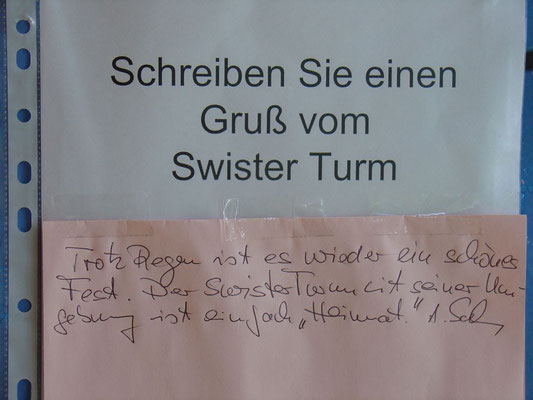 Schreiben Sie einen
Gruß vom
Swister Turm
Trotz Regen ist es wieder ein schönes
Fest. Der Swister Turm mit seiner Um-
gebung ist einfach „Heimat."